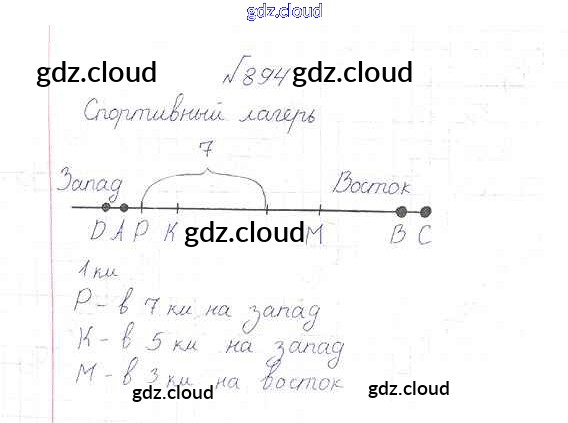 gdz.cloud
gdz.cloud
№894
gdz.cloud
Спортивный лагерь
7
Запад
Восток
D A P K
gdz.cloud
M
B C
1 км
P - в 7 км на запад
K - в 5 км на запад
M - в 3 км на восток
gdz.cloud
gdz.cloud